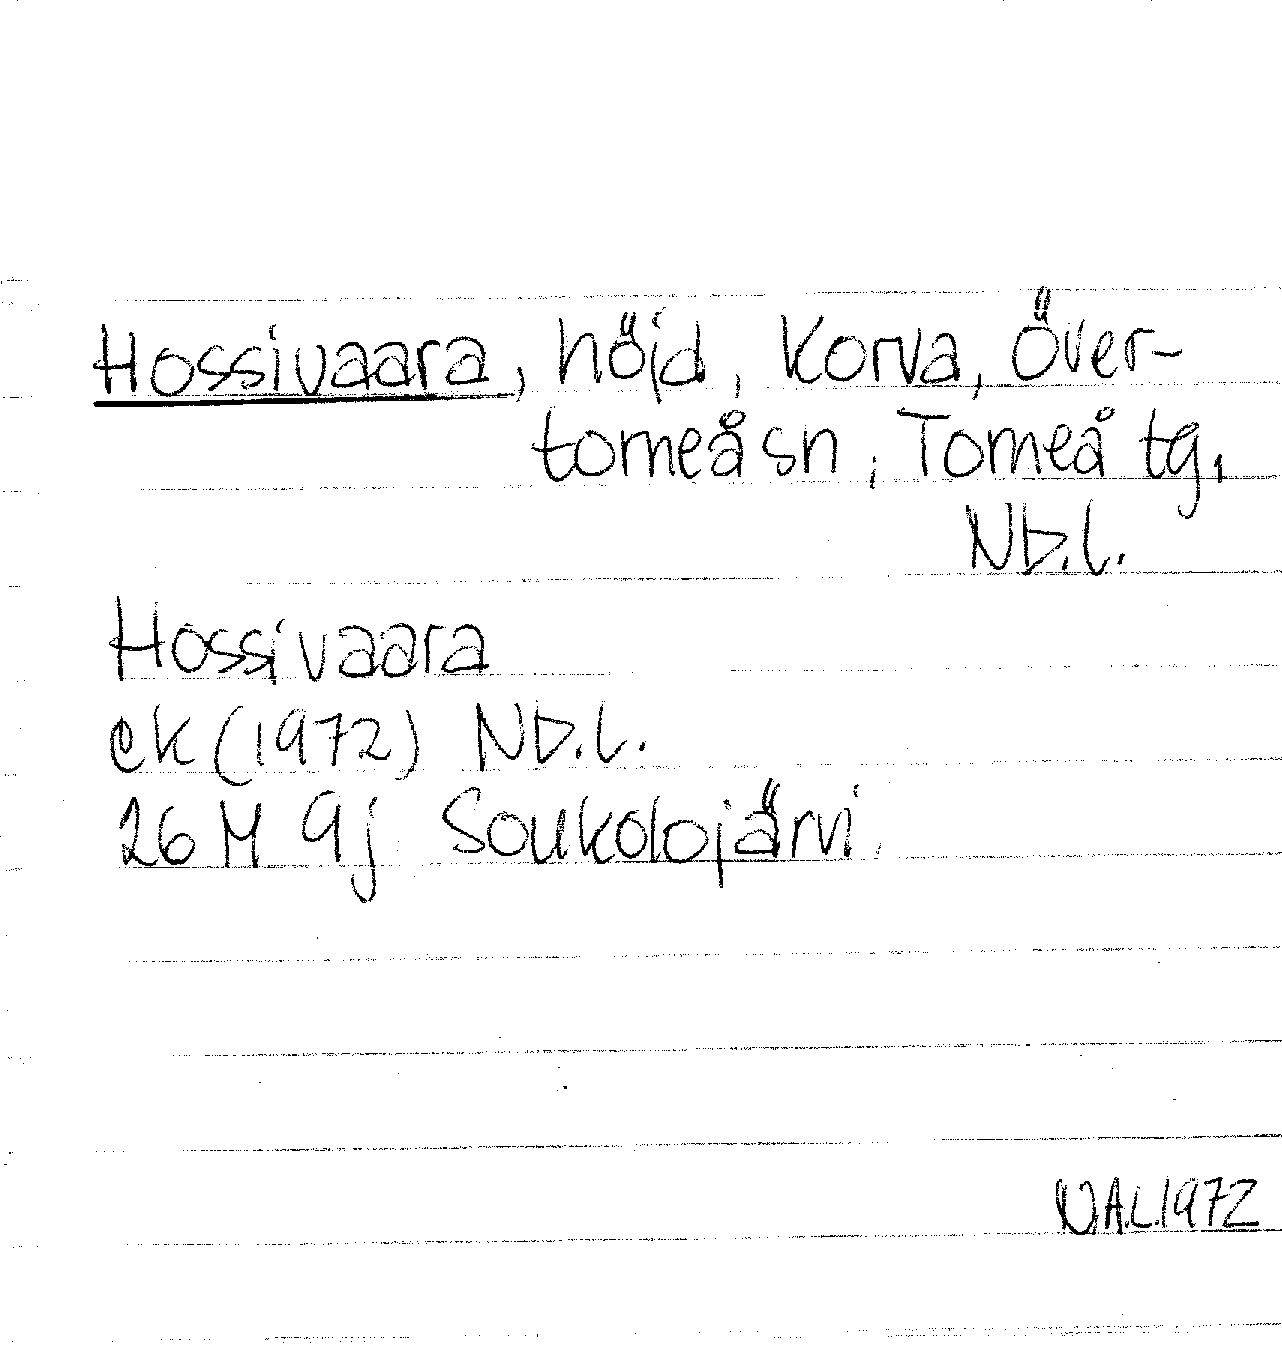 Hossivaara, höjd, Korva, Över-
torneå sn, Torneå tg,
Nb.l.
Hossivaara
ek (1972) Nb.l.
26 M 9j Soukolojärvi
N.A.L. 1972